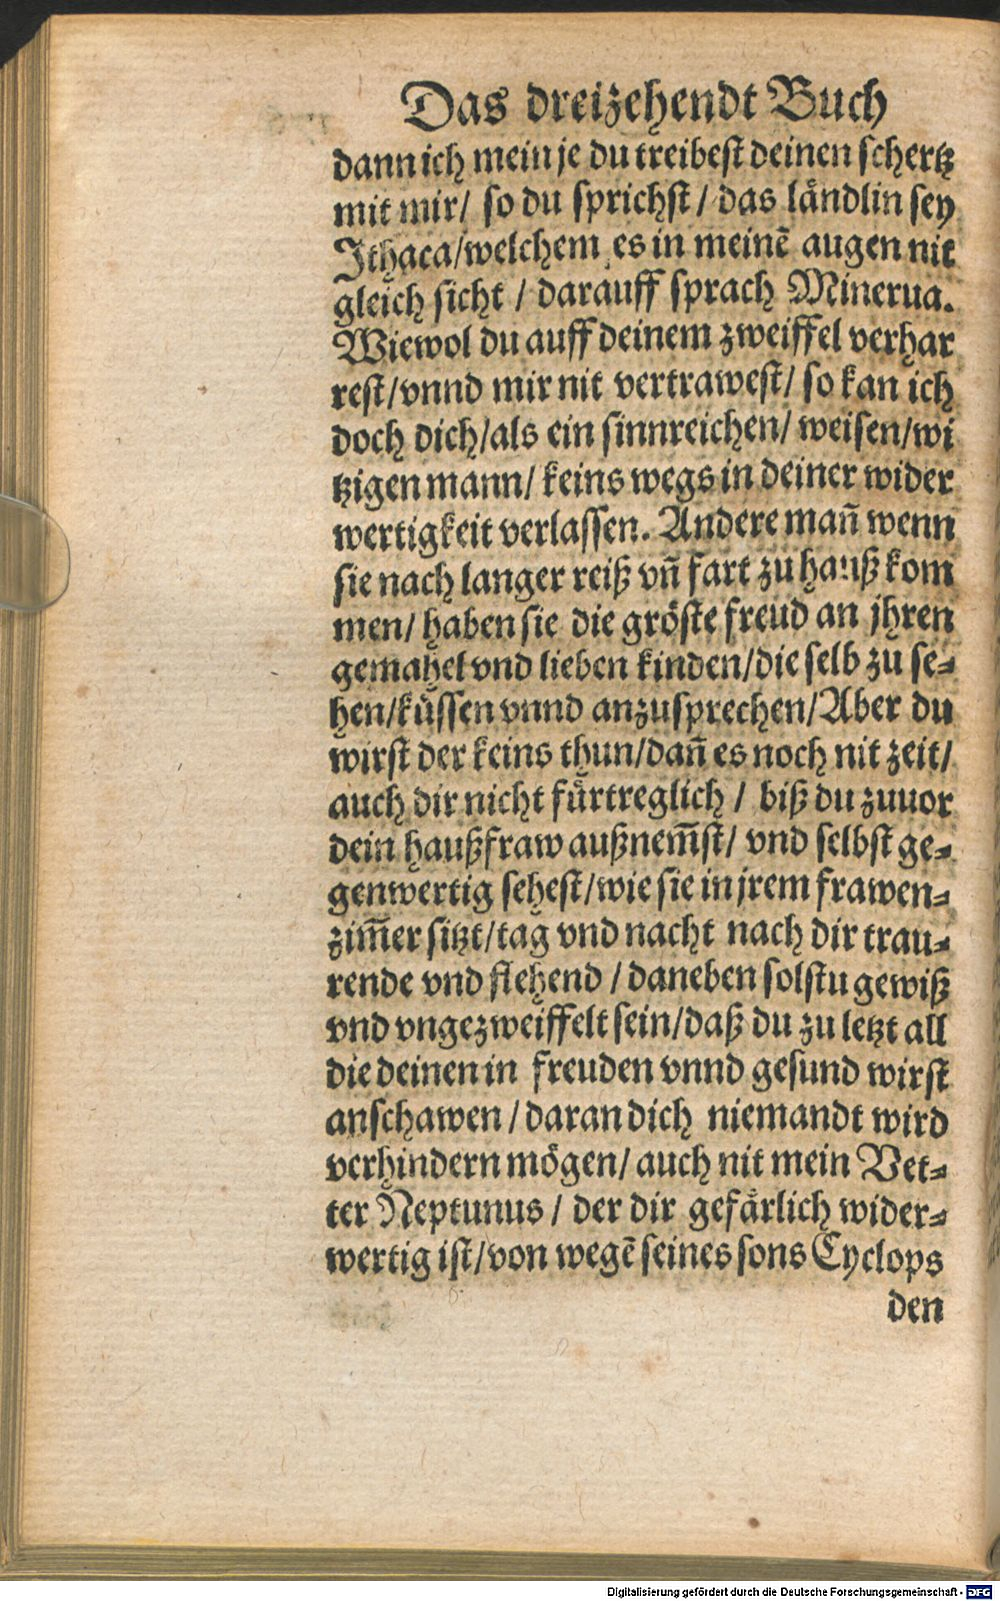 Das dreizehendt Buch
dann ich mein je du treibest deinen schertz
mit mir/ so du sprichst/ das laͤndlin sey
Ithaca/welchem es in meinē augen nit
gleich sicht / darauff sprach Minerua.
Wiewol du auff deinem zweiffel verhar
rest/vnnd mir nit vertrawest/ so kan ich
doch dich/als ein sinnreichen/ weisen/wi
tzigen mann/ keins wegs in deiner wider
wertigkeit verlassen. Andere mañ wenn
sie nach langer reiß vñ fart zu hauß kom
men/ haben sie die groͤste freud an jhren
gemahel vnd lieben kinden/die selb zu se-
hen/kuͤssen vnnd anzusprechen/Aber du
wirst der keins thun/dañ es noch nit zeit/
auch dir nicht fuͤrtreglich / biß du zuuor
dein haußfraw außnem̄st/ vnd selbst ge-
genwertig sehest/wie sie in jrem frawen-
zim̄er sitzt/tag vnd nacht nach dir trau-
rende vnd flehend / daneben solstu gewiß
vnd vngezweiffelt sein/daß du zu letzt all
die deinen in freuden vnnd gesund wirst
anschawen / daran dich niemandt wird
verhindern moͤgen/ auch nit mein Vet-
ter Neptunus / der dir gefaͤrlich wider-
wertig ist/von wegē seines sons Cyclops
den
Digitalisierung gefördert durch die Deutsche Forschungsgemeinschaft - DFG